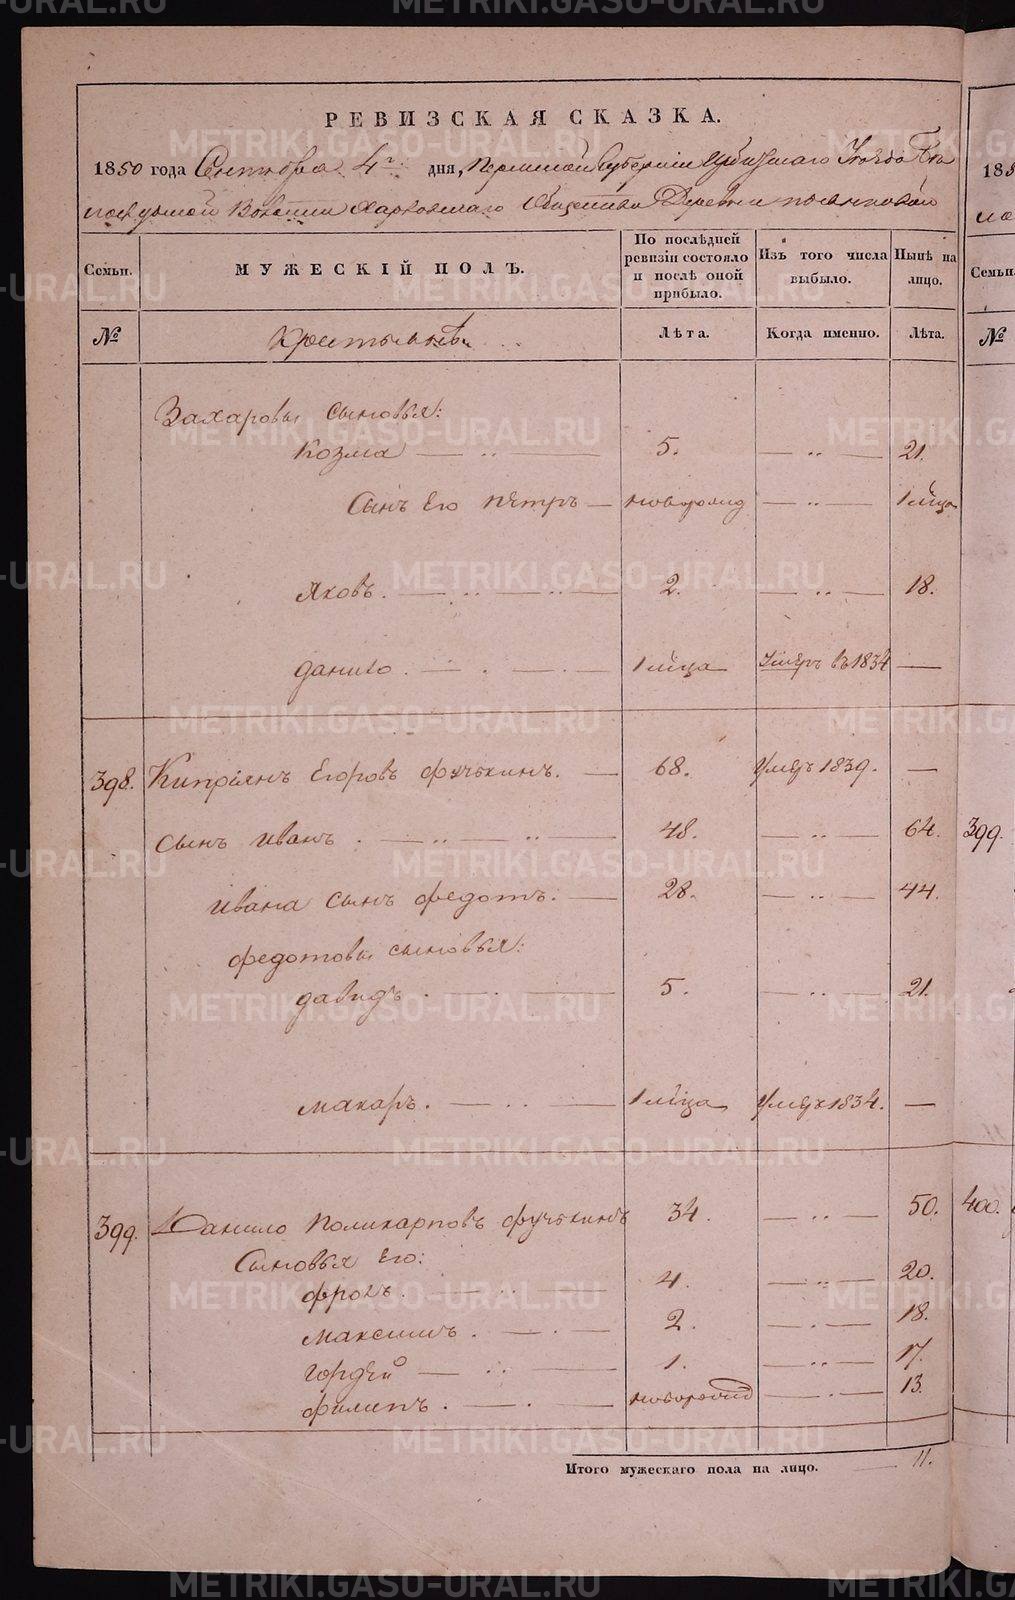 РЕВИЗСКАЯ СКАЗКА.
1850 года Сентября 4го дня, Пермской Губернии Ирбитскаго Уезда Бѣ
лослудской Волости Харловскаго Общества Деревни
Семьи. МУЖЕСКІЙ ПОЛЪ. По послѣдней ревизіи состояло и послѣ оной прибыло. Изъ того числа выбыло. Нынѣ на лицо.
№ Крестьянъ Лѣта. Когда именно. Лѣта.
Захаровы сыновья:
Козма 5. 21.
Сынъ Его Петръ новорожд 1 мѣца
Яковъ. 2. 18.
данило. 1 мѣца Умеръ въ 1834
398. Кипріянъ Егоровъ фучкинъ. 68. Умеръ 1839.
сынъ иванъ. 48. 64.
ивана сынъ федотъ. 28. 44.
федотовы сыновья:
давидъ. 5. 21.
макаръ. 1 мѣца Умеръ 1834.
399. Данило Поликарповъ фучкинъ 34. 50.
Сыновья Его:
фролъ. 4. 20.
максимъ. 2. 18.
гордѣй 1. 17.
филипъ. новорожд 13.
Итого мужескаго пола на лицо. 11.
185
Семьи.
№
399.
400.
METRIKI.GASO-URAL.RU